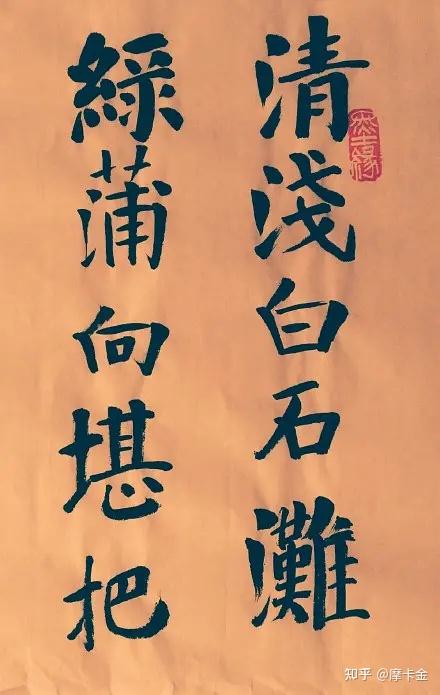 清淺白石灘
綠蒲向堪把
知乎 @摩卡金